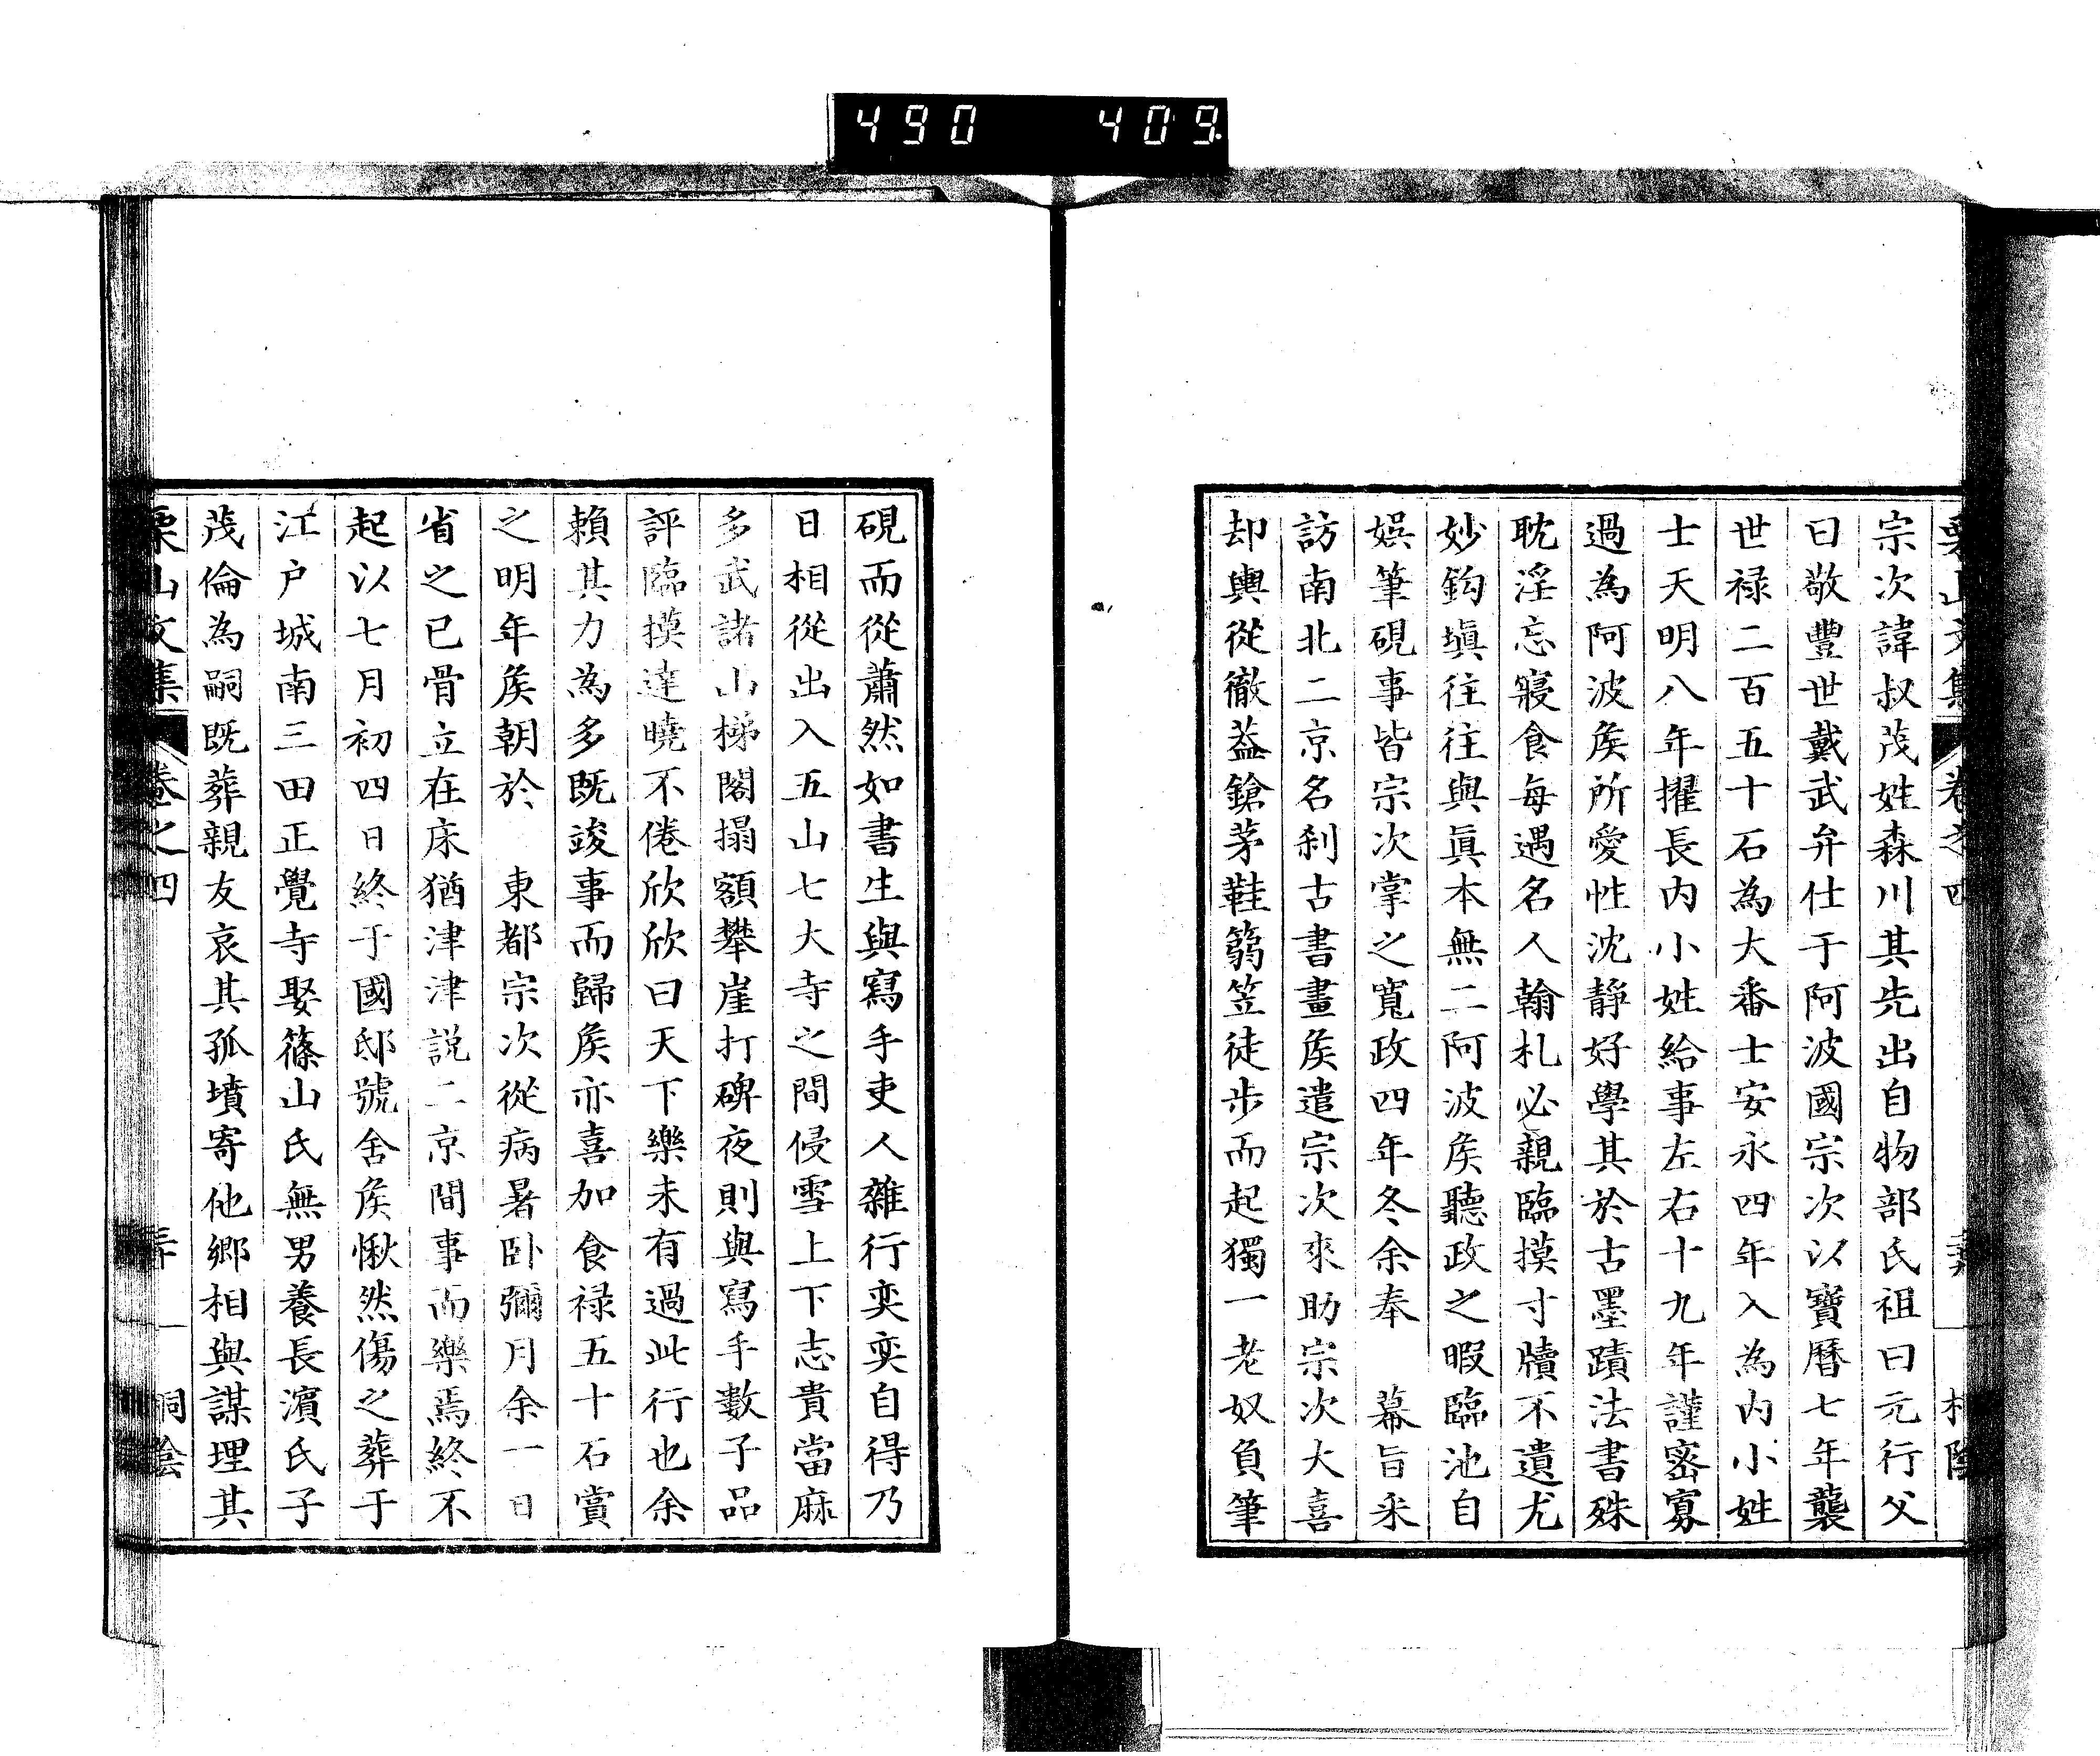 490 409
宗次諱叔茂姓森川其先出自物部氏祖曰元行父
曰敬豐世戴武弁仕于阿波國宗次以寶曆七年襲
世禄二百五十石為大番士安永四年入為內小姓
士天明八年擢長內小姓給事左右十九年謹密寡
過為阿波矦所愛性沈靜好學其於古墨蹟法書殊
耽淫忘寢食每遇名人翰札必親臨摸寸牘不遺尤
妙鈎塡往往與眞本無二阿波矦聽政之暇臨池自
娯筆硯事皆宗次掌之寬政四年冬余奉　幕旨采
訪南北二京名刹古書畫矦遣宗次來助宗次大喜
却輿從徹葢鎗茅鞋篛笠徒步而起獨一老奴負筆
硯而從蕭然如書生與寫手吏人雜行奕奕自得乃
日相從出入五山七大寺之間侵雪上下志貴當麻
多武諸山梯閣搨額攀崖打碑夜則與寫手數子品
評臨摸達曉不倦欣欣曰天下樂未有過此行也余
賴其力為多既竣事而歸矦亦喜加食禄五十石賞
之明年矦朝於　東都宗次從病暑卧彌月余一日
省之已骨立在床猶津津説二京間事而樂焉終不
起以七月初四日終于國邸號舍矦愀然傷之葬于
江户城南三田正覺寺娶篠山氏無男養長濱氏子
茂倫為嗣既葬親友哀其孤墳寄他鄉相與謀埋其
栗山文集 卷之四